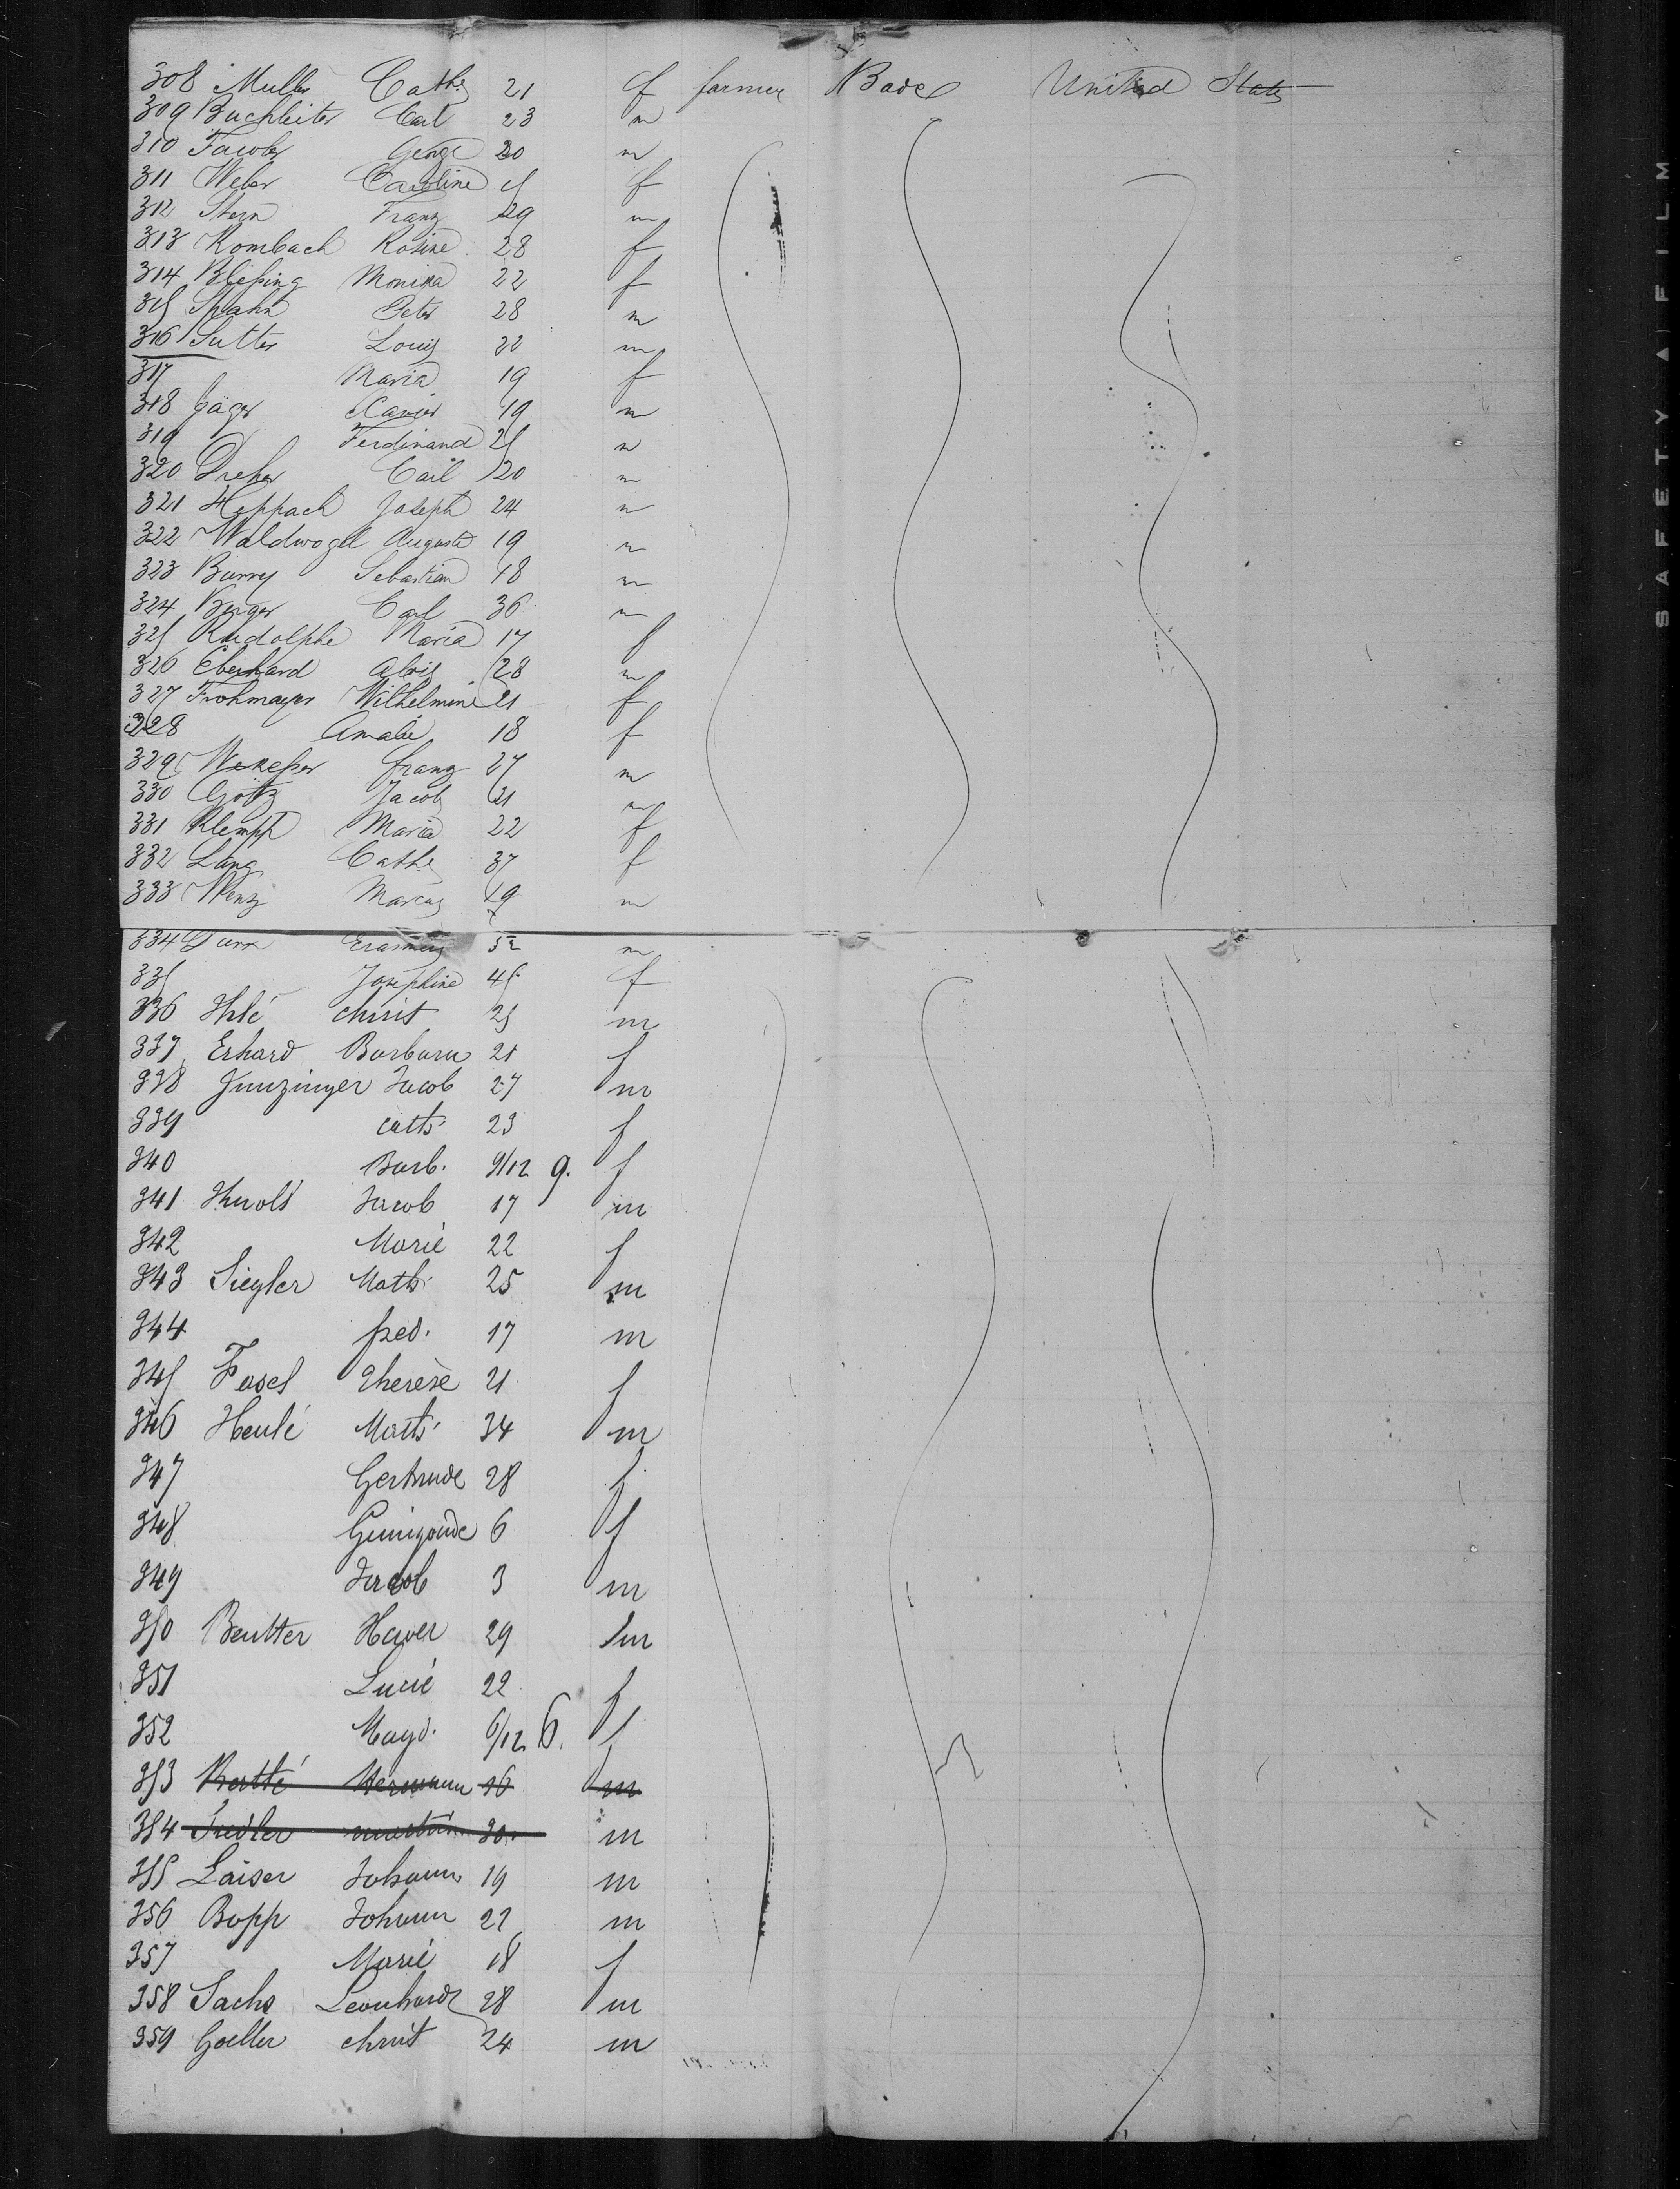 308 Muller Cathe 21 f farmer Bade United States
309 Buchleiter Carl 23 m
310 George 20 m
311 Weber Caroline f
312 Stern Franz 29 m
313 Rombach Rosine 28 f
314 Bleßing Monika 22 f
315 Spahn Peter 28 m
316 Sutter Louis 22 m
317 Maria 19 f
318 Jäger Xavier 19 m
319 Ferdinand 25 m
320 Dreher Carl 20 m
321 Heppach Joseph 24 m
322 Waldvogel Auguste 19 m
323 Burry Sebastian 18 m
324 Berger Carl 36 m
325 Rudolphe Maria 17 f
326 Eberhard Alois 28 m
327 Frohmayer Wilhelmine 21 f
328 Amalie 18 f
329 franz 27 m
330 Götz Jacob 21 m
331 Klempp Maria 22 f
332 Lang Cathe 37 f
333 Wenz Marcus 19 m
334 Durr Erasmus 52 m
335 Josephine 45 f
336 Ihlé christ 25 m
337 Erhard Barbara 21 f
338 Junzinger Jacob 27 m
339 cath 23 f
340 Barb. 9/12 9. f
341 Jacob 17 m
342 Marie 22 f
343 Siegler Math. 25 m
344 fred. 17 m
345 Fasel Therese 21 f
346 Henlé Math. 34 m
347 Gertrude 28 f
348 6 f
349 Jacob 3 m
350 Beutter Xaver 29 m
351 Lucie 22 f
352 Magd. 6/12 6. f
353 Hermann 16 m
354 martin 30. m
355 Laiser Johann 19 m
356 Bopp Johann 22 m
357 Marie 18 f
358 Sachs Leonhard 28 m
359 Goeller christ 24 m
SAFETY A FILM